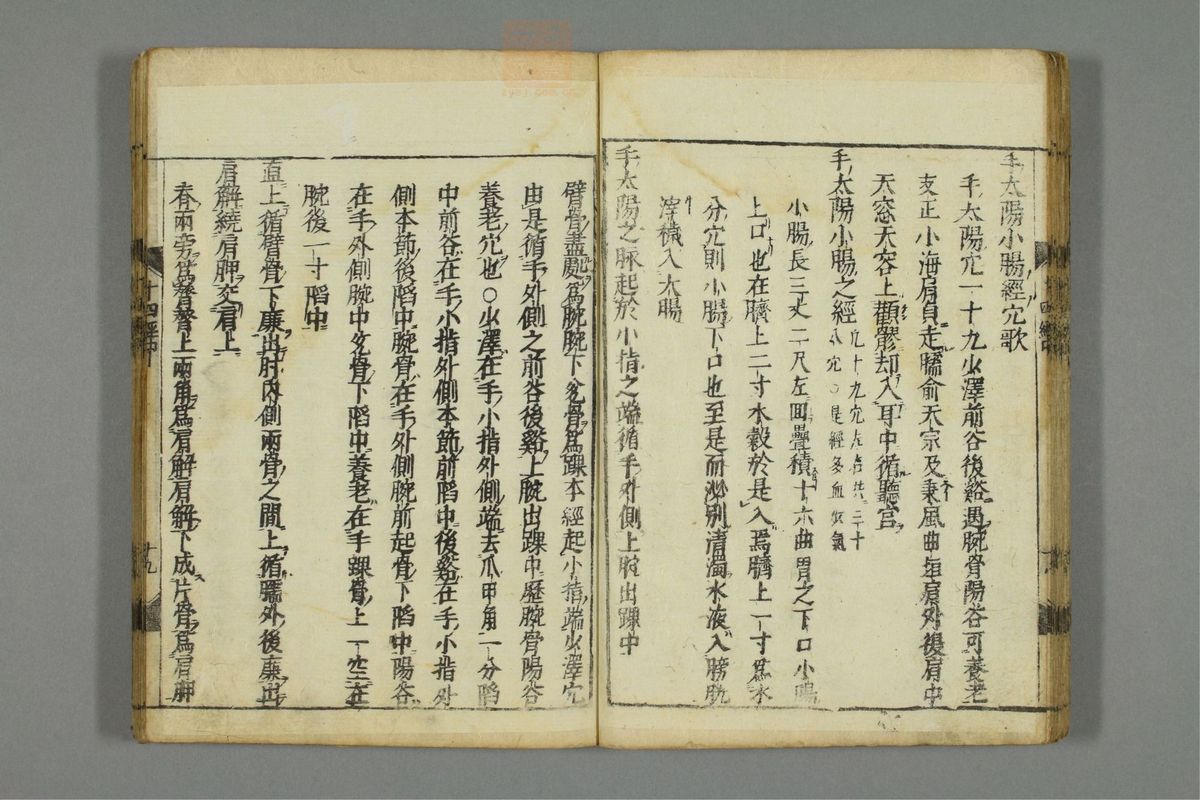 手太陽小腸經穴歌
手太陽穴一十九少澤前谷後谿遇腕骨陽谷可養老
支正小海肩貞走臑俞天宗及秉風曲垣肩外復肩中
天窓天容上顴髎却入耳中循聽宮
手太陽小腸之經凡十九穴左右共三十八穴○是經多血少氣
小腸長三丈二尺左回疊積十六曲胃之下口小腸
上口也在臍上二寸水穀於是入焉臍上一寸爲水
分穴則小腸下口也至是而泌別清濁水液入膀胱
滓穢入大腸
手太陽之脉起於小指之端循手外側上腕出踝中
臂骨盡處爲腕腕下兊骨爲踝本經起小指端少澤穴
由是循手外側之前谷後谿上腕出踝中歷腕骨陽谷
養老穴也○少澤在手小指外側端去爪甲角一分陷
中前谷在手小指外側本節前陷中後谿在手小指外
側本節後陷中腕骨在手外側腕前起骨下陷中陽谷
在手外側腕中兊骨下陷中養老在手踝骨上一空在
腕後一寸陷中
直上循臂骨下廉出肘內側兩骨之間上循臑外後廉出
肩解繞肩胛交肩上
脊兩旁爲膂膂上兩角爲肩解肩解下成片骨爲肩胛
十四經中
十九